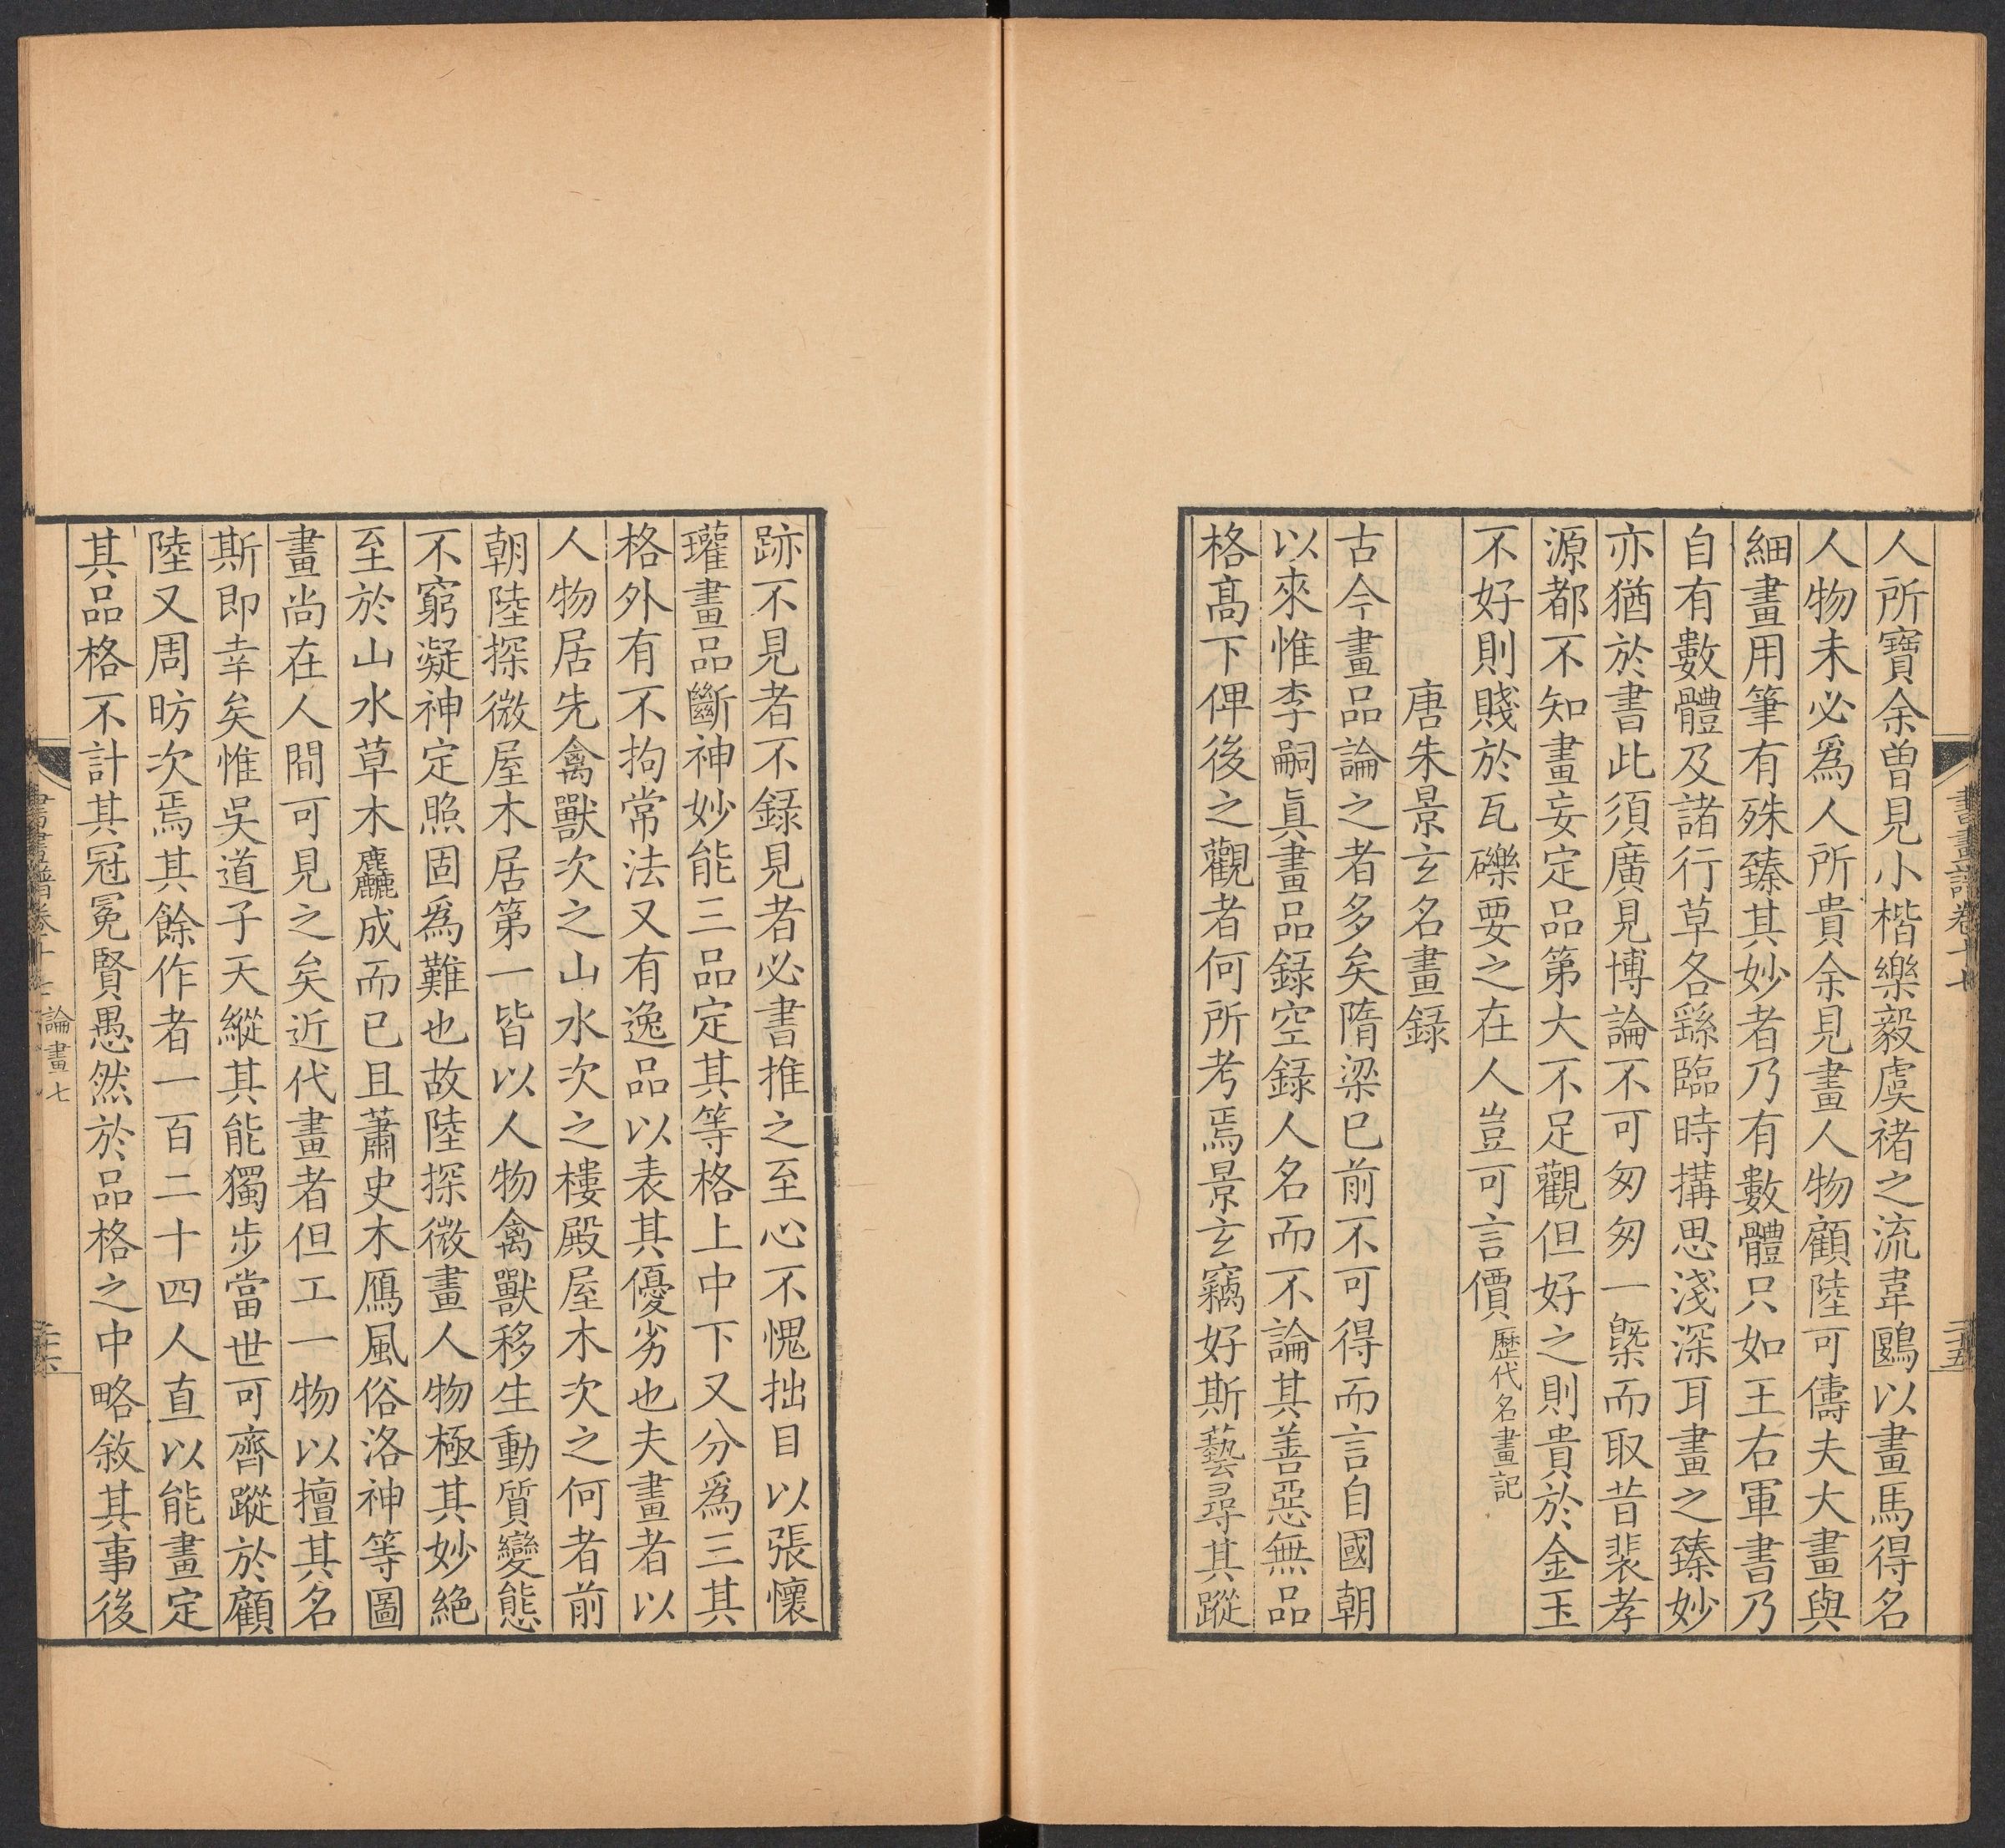 書畫譜卷十七
二十五
人所寶余曾見小楷樂毅虞褚之流韋鷗以畫馬得名
人物未必爲人所貴余見畫人物顧陸可儔夫大畫與
細畫用筆有殊臻其妙者乃有數體只如王右軍書乃
自有數體及諸行草各繇臨時搆思淺深耳畫之臻妙
亦猶於書此須廣見博論不可匆匆一槩而取昔裴孝
源都不知畫妄定品第大不足觀但好之則貴於金玉
不好則賤於瓦礫要之在人豈可言價歷代名畫記
唐朱景玄名畫録
古今畫品論之者多矣隋梁已前不可得而言自國朝
以來惟李嗣眞畫品録空録人名而不論其善惡無品
格高下俾後之觀者何所考焉景玄竊好斯藝尋其蹤
跡不見者不録見者必書推之至心不愧拙目以張懷
瓘畫品斷神妙能三品定其等格上中下又分爲三其
格外有不拘常法又有逸品以表其優劣也夫畫者以
人物居先禽獸次之山水次之樓殿屋木次之何者前
朝陸探微屋木居第一皆以人物禽獸移生動質變態
不窮凝神定照固爲難也故陸探微畫人物極其妙絶
至於山水草木麤成而已且蕭史木鴈風俗洛神等圖
畫尚在人間可見之矣近代畫者但工一物以擅其名
斯即幸矣惟吳道子天縱其能獨步當世可齊蹤於顧
陸又周昉次焉其餘作者一百二十四人直以能畫定
其品格不計其冠冕賢愚然於品格之中略敘其事後
書畫譜卷十七 論畫七
二十六